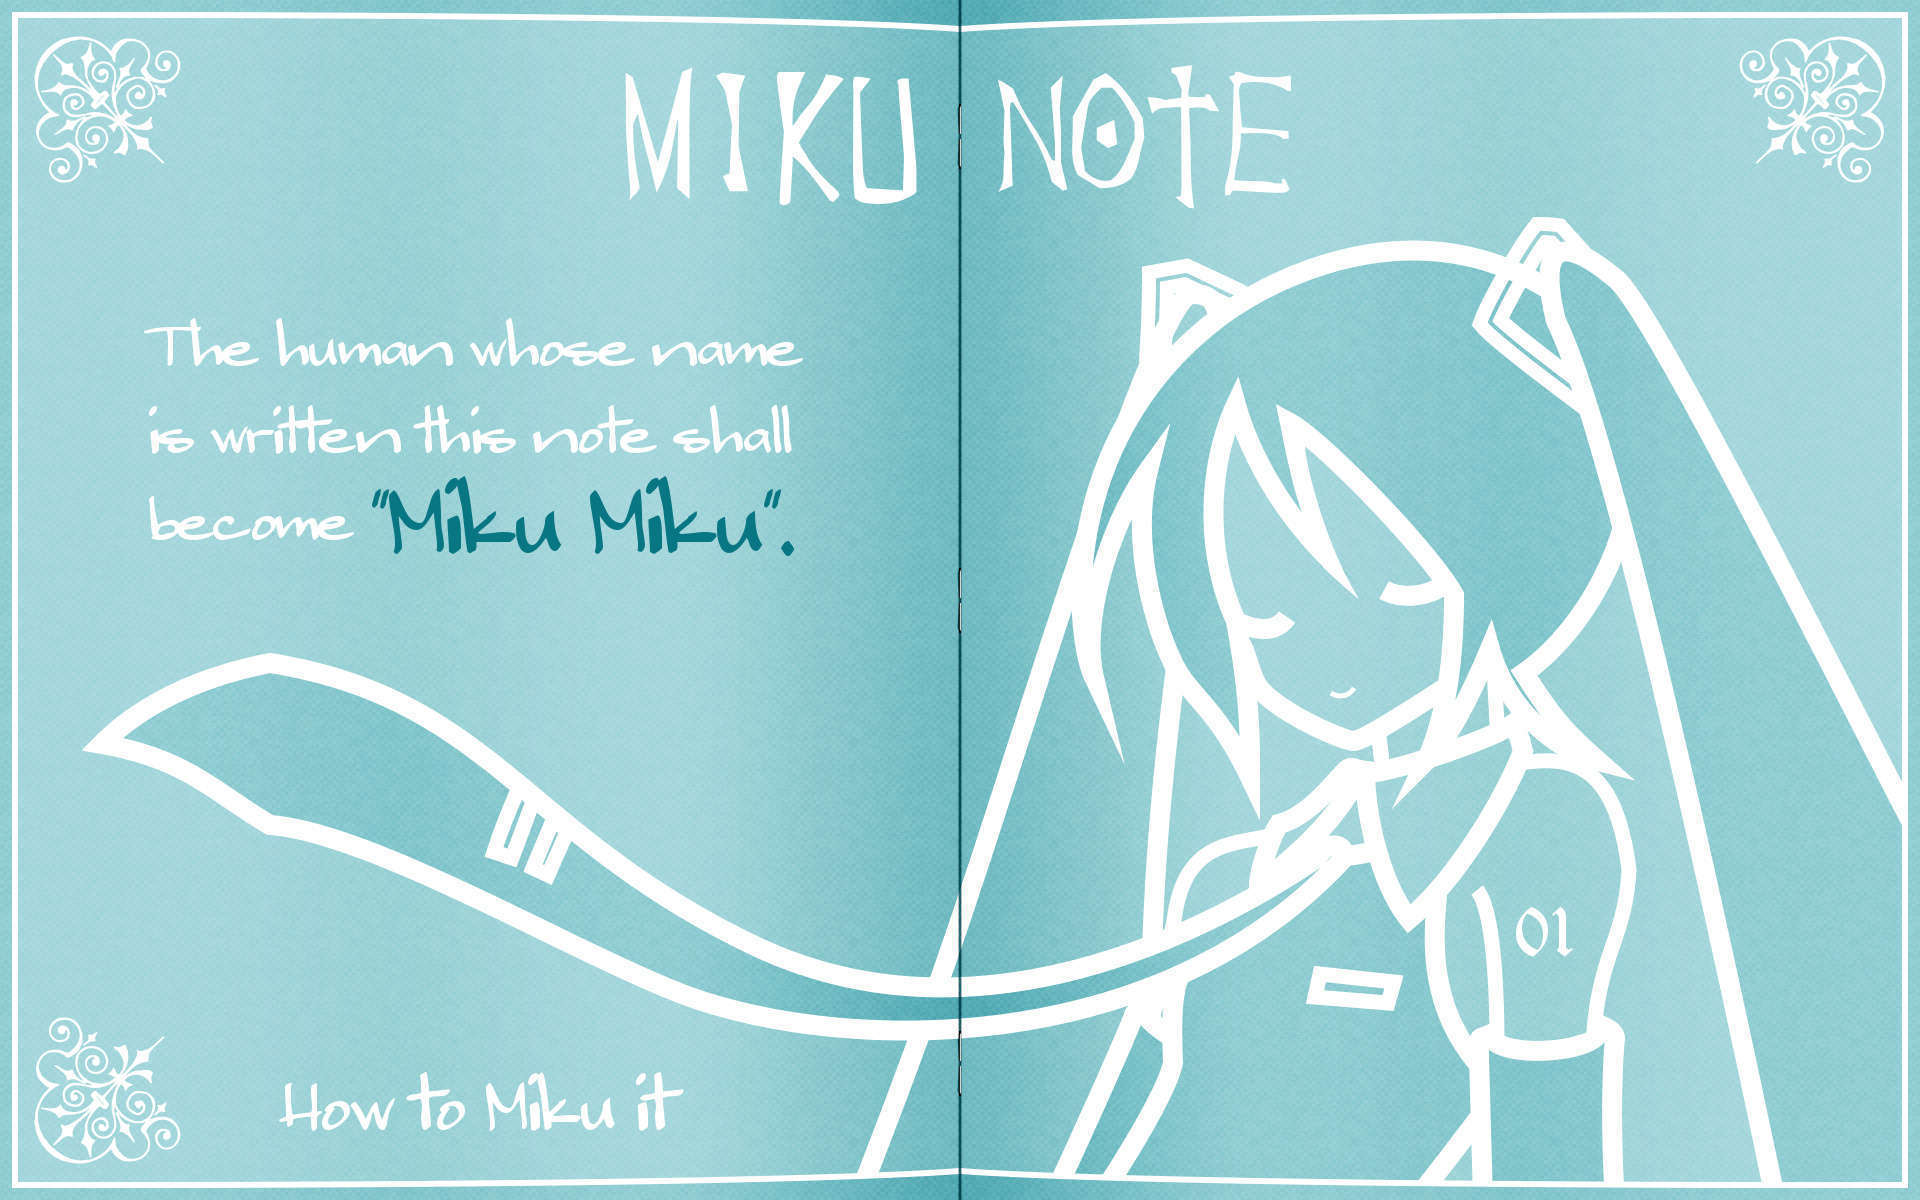 MIKU NOTE
The human whose name
is written this note shall
become "Miku Miku".
01
How to Miku it